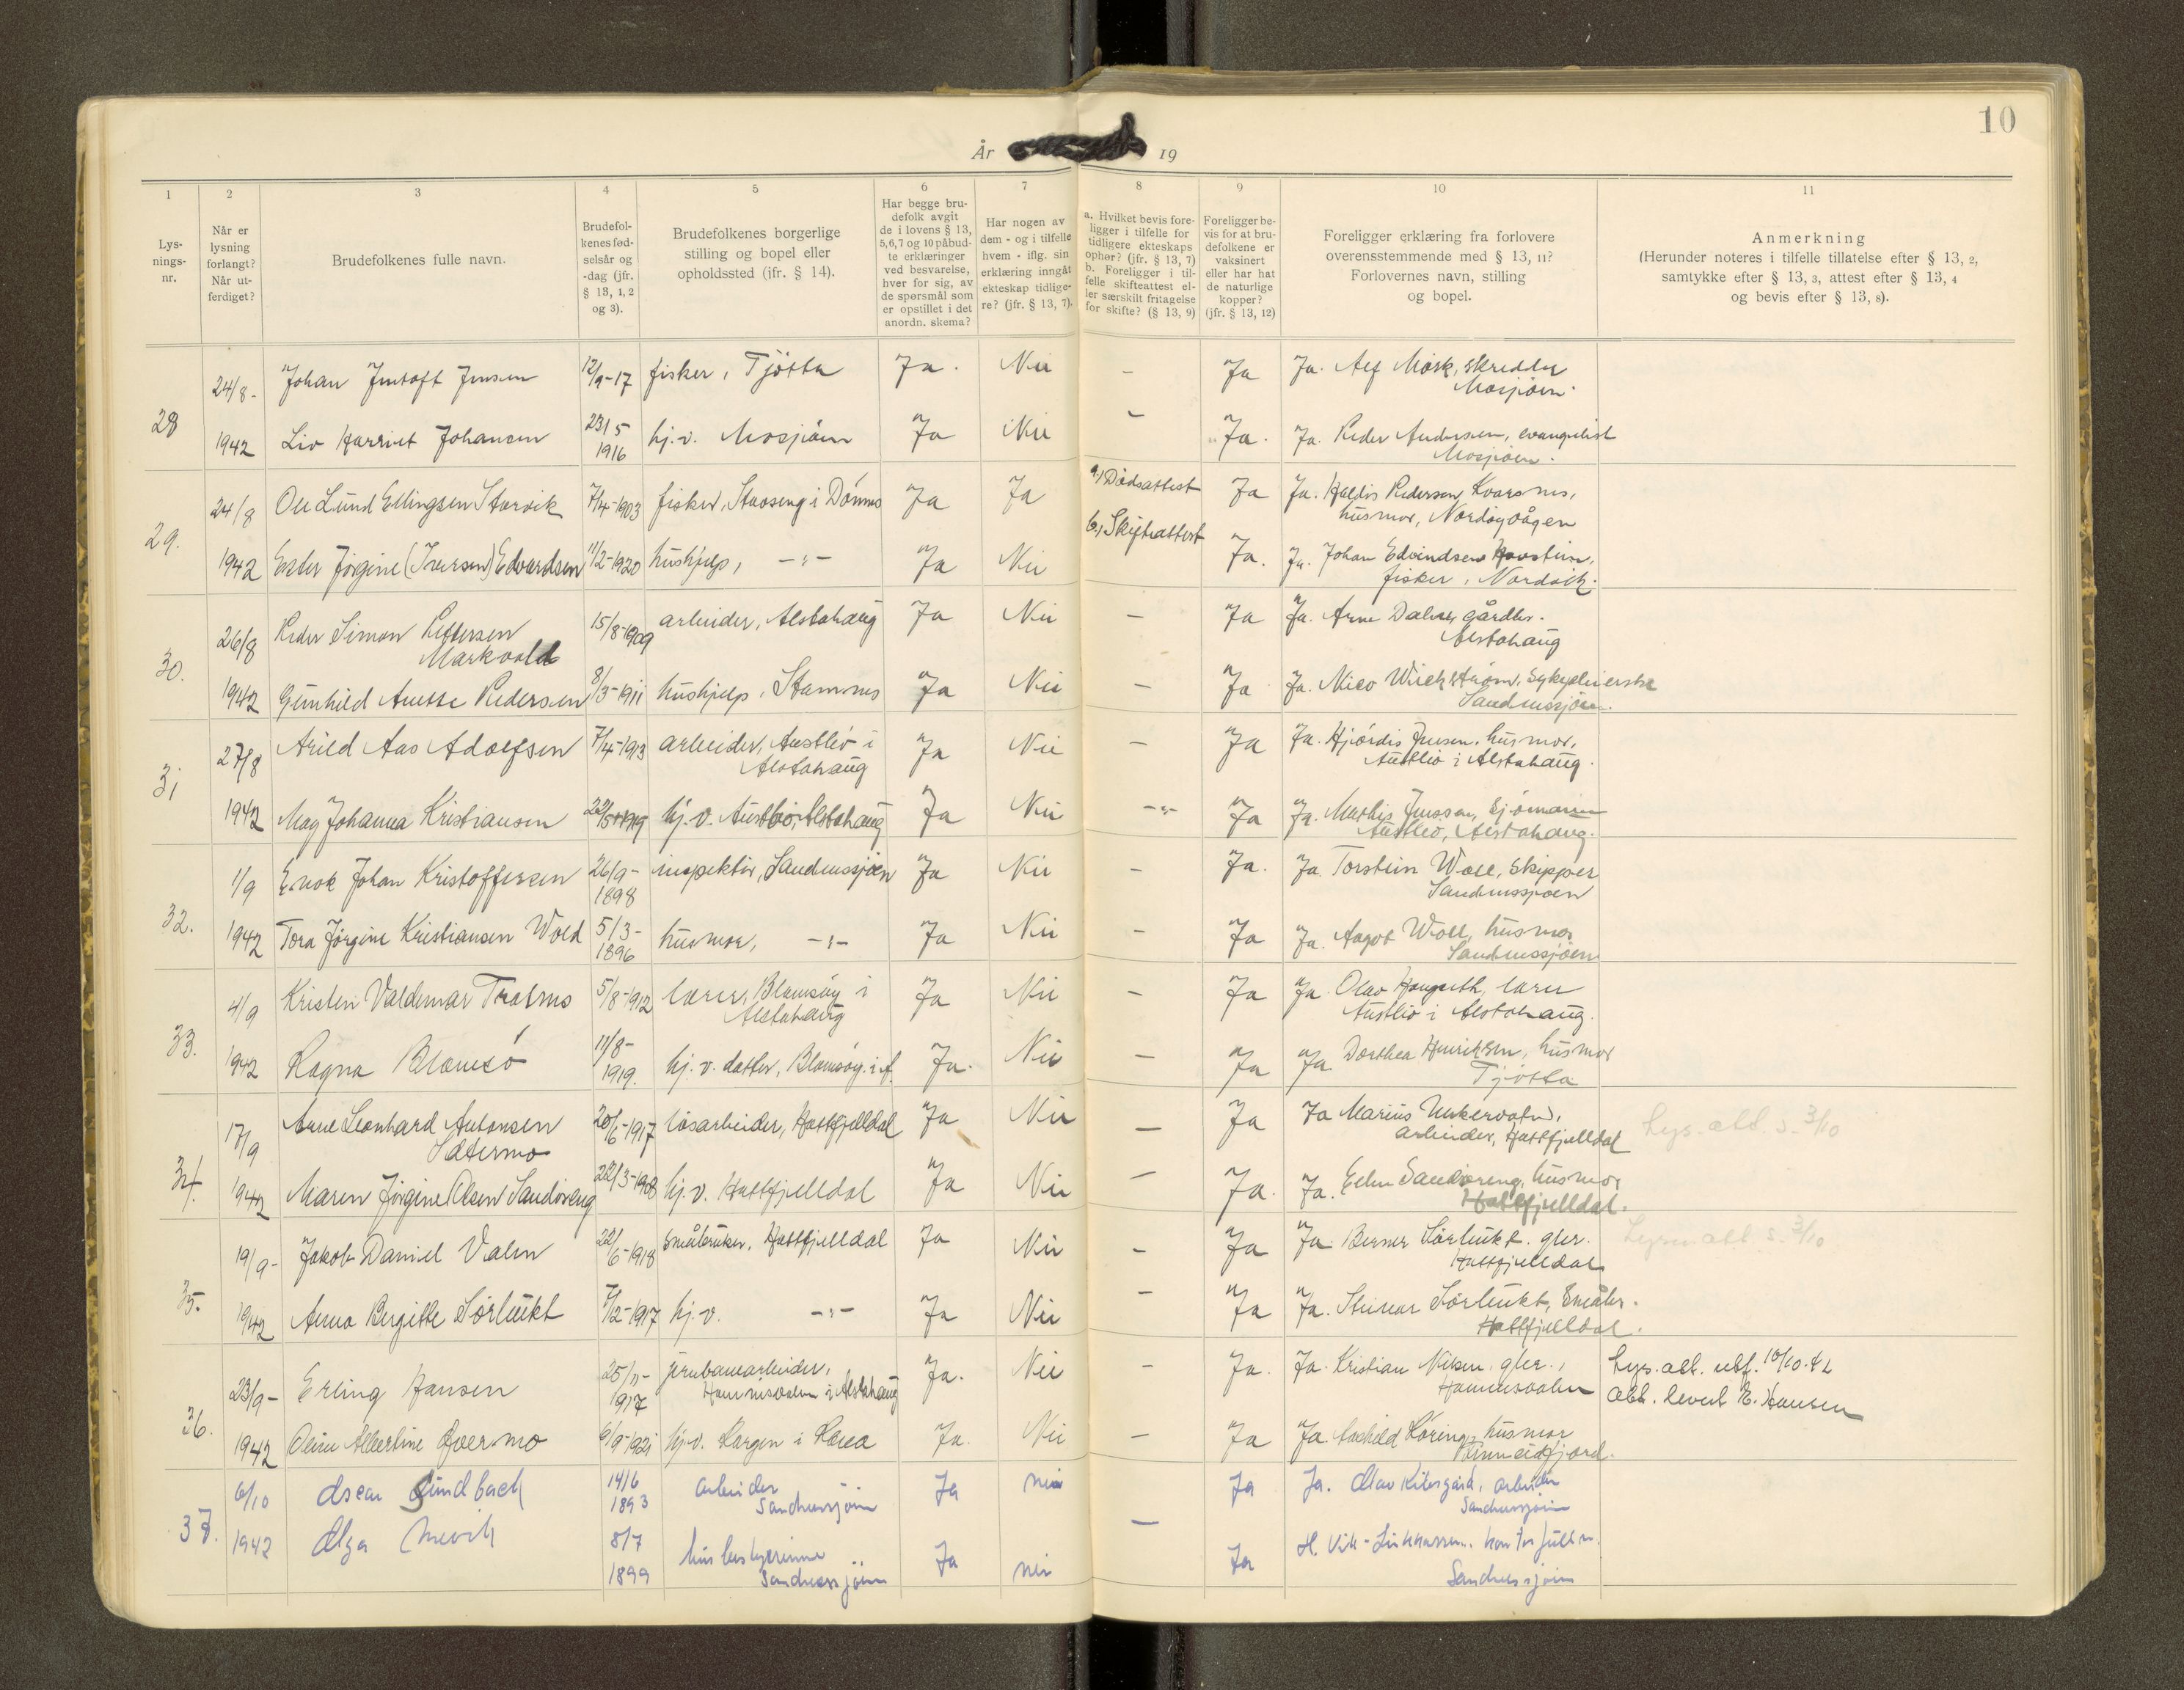 10
År 19
1 2 3 4 5 6 7 8 9 10 11
Lys-
nings-
nr.
Når er
lysning
forlangt?
Når ut-
ferdiget?
Brudefolkenes fulle navn.
Brudefol-
kenes fød-
selsår og
-dag (jfr.
§ 13, 1, 2
og 3).
Brudefolkenes borgerlige
stilling og bopel eller
opholdssted (jfr. § 14).
Har begge bru-
defolk avgit
de i lovens § 13,
5,6,7 og 10 påbud-
te erklæringer
ved besvarelse,
hver for sig, av
de spørsmål som
er opstillet i det
anordn. skema?
Har nogen av
dem - og i tilfelle
hvem - iflg. sin
erklæring inngåt
ekteskap tidlige-
re? (jfr. § 13, 7).
a. Hvilket bevis fore-
ligger i tilfelle for
tidligere ekteskaps
ophør? (jfr. § 13, 7)
b. Foreligger i til-
felle skifteattest el-
ler særskilt fritagelse
for skifte? (§ 13, 9)
Foreligger be-
vis for at bru-
defolkene er
vaksinert
eller har hat
de naturlige
kopper?
(jfr. § 13, 12)
Foreligger erklæring fra forlovere
overensstemmende med § 13, 11?
Forlovernes navn, stilling
og bopel.
Anmerkning
(Herunder noteres i tilfelle tillatelse efter § 13, 2,
samtykke efter § 13, 3, attest efter § 13, 4
og bevis efter § 13, 8).
28
24/8- Johan Jentoft Jensen 12/9-17 fisker, Tjötta Ja. Nei - Ja Ja. Alf Mosk, skredder
Mosjöen.
1942 Liv Harriet Johansen 23/5 1916 hj.v. Mosjöen Ja Nei - Ja. Ja. Peder Andersen, evangelist
Mosjöen.
29.
24/8 Ole Lund Ellingsen Storvik 7/4-1903 fisker, Staoseng i Dönnes Ja Ja a.) Dödsattest Ja Ja. Haldis Pedersen, Kvarsnes,
husmor, Nordöyvågen
b.) Skifteattest
1942 Ester Jörgine (Iversen) Edvardsen 11/2-1920 hushjelp, -"- Ja Nei Ja. Ja. Johan Edvindsen
fisker, Nordvik.
30.
26/8 Peder Simon Pettersen
Markvold 15/8-1909 arbeider, Alstahaug Ja Nei - Ja Ja. Arne Dalnes gårdbr.
Alstahaug
1942 Gunhild Anette Pedersen 8/3-1911 hushjelp, Stamnes Ja Nei - Ja Ja. Nico Wickström, Sykepleierske
Sandnessjöen.
31
27/8 Arild Aas Adolfsen 7/4-1913 arbeider, Austbö i
Alstahaug Ja Nei - Ja Ja. Hjördis Jensen, husmor,
Austbö i Alstahaug.
1942 May Johanna Kristiansen 22/5-1919 hj.v. Austbö, Alstahaug Ja Nei -"- Ja Ja. Mathis Jenssen, Sjömann
Austbö, Alstahaug.
32.
1/9 Enok Johan Kristoffersen 26/9-
1898 inspektör, Sandnessjöen Ja Nei - Ja. Ja. Torstein Woll, Skipper
Sandnessjöen
1942 Tora Jörgine Kristiansen Wold 5/3-
1896 husmor, -"- Ja Nei - Ja Ja. Aagot Woll, husmor
Sandnessjöen
33.
4/9 Kristen Valdemar Tralnes 5/8-1912 lærer, Blomsöy i
Alstahaug Ja Nei - Ja Ja. Olav Haugseth, lærer
Austbö i Alstahaug.
1942 Ragna Blomsö 11/8-
1919. hj.v. datter, Blomsöy i A. Ja. Nei - Ja Ja Dorthea Henriksen, husmor
Tjötta
34.
17/9 Arne Leonhard Antonsen
Sætermo 20/6-1917 lösarbeider, Hattfjelldal Ja Nei - Ja Ja Marius Unkervatn,
arbeider, Hattfjelldal
Lys. att. s. 3/10
1942 Maren Jörgine Olsen Sandöreng 22/3-1908 hj.v. Hattfjelldal Ja Nei - Ja. Ja. Sandöreng, husmor
Hattfjelldal.
35.
19/9- Jakob Daniel Valen 22/6-1918 småbruker, Hattfjelldal Ja Nei - Ja Ja. Berner Sörbukt. gbr.
Hattfjelldal
att. s. 3/10
1942 Anna Birgitte Sörbukt 7/12-1917 hj.v. -"- Ja Nei - Ja Ja. Steinar Sörbukt, Småbr.
Hattfjelldal.
36.
23/9- Erling Hansen 25/11-
1917 jernbanearbeider,
i Alstahaug Ja. Nei - Ja. Ja. Kristian Nilsen, gbr.,
Lys. att. utf. 10/10-42
Att. levert E. Hansen
1942 Albertine Övermo 6/9-1921 hj.v. Ja. Nei - Ja Ja. husmor
37.
6/10 Oscar Sundbach 14/6
1893 arbeider
Sandnessjöen Ja nei Ja Ja. Olav Kibsgård, arbeider
Sandnessjöen
1942 Olga Mevik 8/7
1899 husbestyrerinne
Sandnessjöen Ja nei - Ja H. Vik-
Sandnessjöen